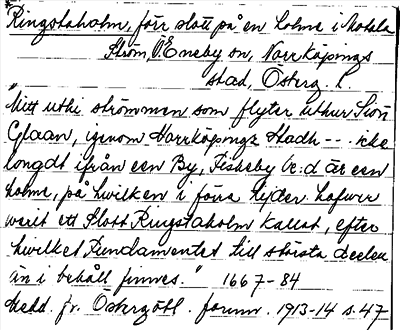 Ringstaholm, förr slott på en holme i Motala
Ström, Ö. Eneby sn, Norrköpings
stad, Österg. l.
"Mitt uthi strömmen som flyter uthur Siön
Glaan, igenom Norrköpingz Stadh -- icke
longdt ifrån een By, Fiskeby be:d är een
holme, på hwilken i förra tijder hafwer
warit ett Slott Ringstaholm kallat, efter
hwilket Fundamentet till största deelen
än i behåll finnes." 1667-84
Medd. fr. Östergötl. fornm. 1913-14 s. 47